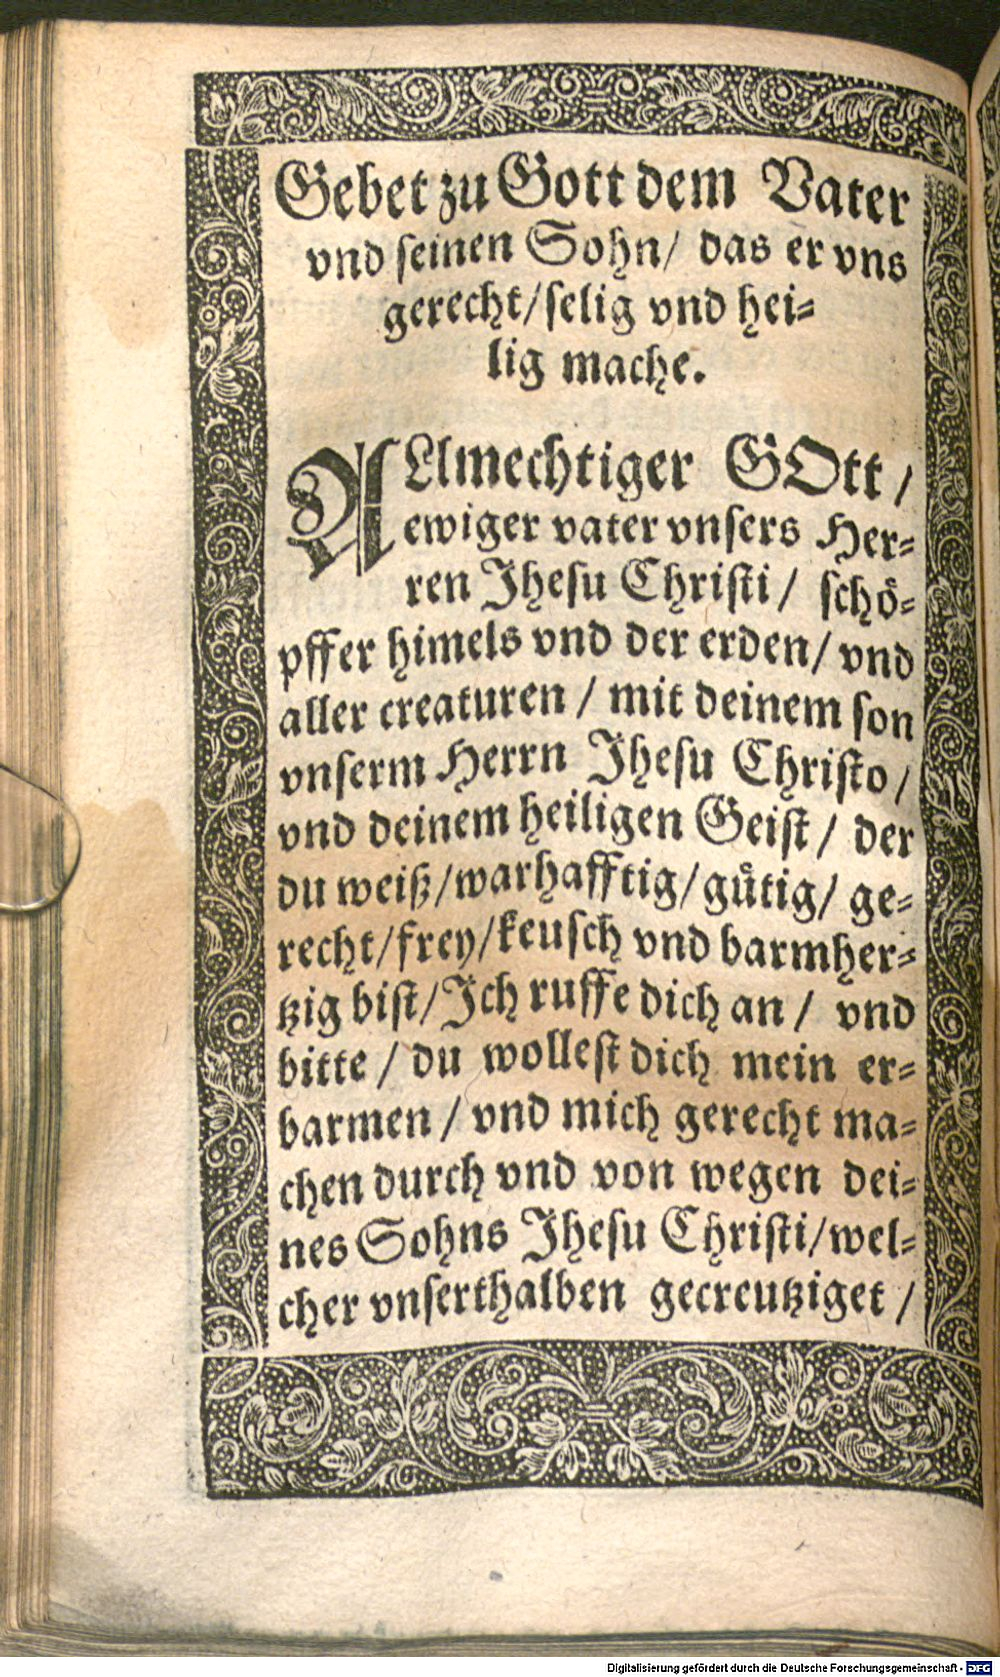 Gebet zu Gott dem Vater
vnd ſeinen Sohn/ das er vns
gerecht/ſelig vnd hei⸗
lig mache.
ALlmechtiger GOtt /
ewiger vater vnſers Her⸗
ren Jheſu Chriſti / ſchoͤ⸗
pffer himels vnd der erden/ vnd
aller creaturen / mit deinem ſon
vnſerm Herrn Jheſu Chriſto /
vnd deinem heiligen Geiſt / der
du weiß/warhafftig/guͤtig/ ge⸗
recht/frey/keuſch vnd barmher⸗
tzig biſt/Jch ruffe dich an / vnd
bitte / du wolleſt dich mein er⸗
barmen / vnd mich gerecht ma⸗
chen durch vnd von wegen dei⸗
nes Sohns Jheſu Chriſti/wel⸗
cher vnſerthalben gecreutziget /
Digitalisierung gefördert durch die Deutsche Forschungsgemeinschaft - DFG